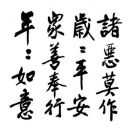 諸惡莫作
歲〻平安
眾善奉行
年〻如意